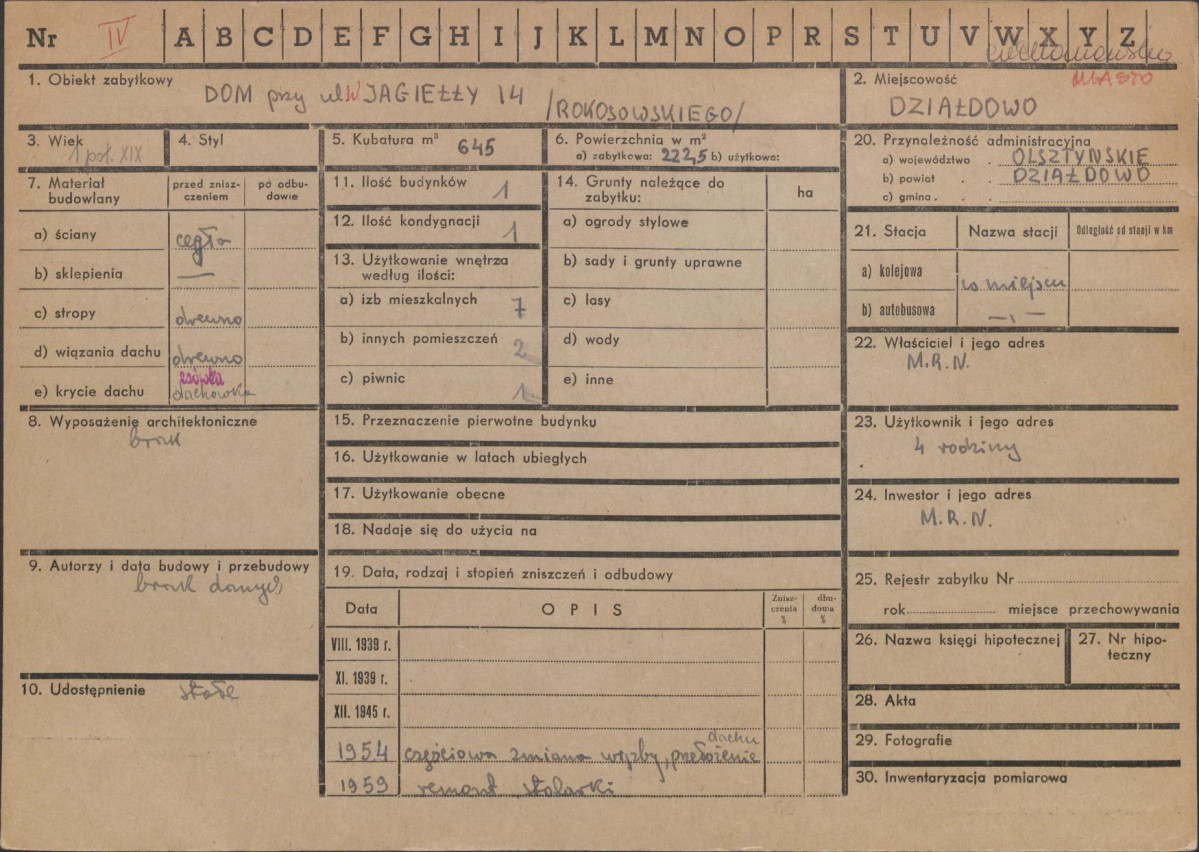 Nr IV A B C D E F G H I J K L M N O P R S T U V W X Y Z
ciechanowskie
1. Obiekt zabytkowy DOM przy ul W JAGIEŁŁY 14 /ROKOSOWSKIEGO/
2. Miejscowość MIASTO
DZIAŁDOWO
3. Wiek 1 poł. XIX
4. Styl
5. Kubatura m³ 645
6. Powierzchnia w m²
a) zabytkowa: 222,5 b) użytkowa:
20. Przynależność administracyjna
a) województwo . OLSZTYŃSKIE
b) powiat . . DZIAŁDOWO
c) gmina . . .
7. Materiał budowlany
przed znisz-
czeniem
po odbu-
dowie
a) ściany cegła
b) sklepienia —
c) stropy drewno
d) wiązania dachu drewno
e) krycie dachu esówka
dachówka
11. Ilość budynków 1
12. Ilość kondygnacji 1
13. Użytkowanie wnętrza
według ilości:
a) izb mieszkalnych 7
b) innych pomieszczeń 2
c) piwnic 1
14. Grunty należące do
zabytku:
ha
a) ogrody stylowe
b) sady i grunty uprawne
c) lasy
d) wody
e) inne
21. Stacja Nazwa stacji Odległość od stacji w km
a) kolejowa w miejscu
b) autobusowa — „ —
22. Właściciel i jego adres
M.R.N.
8. Wyposażenie architektoniczne
brak
15. Przeznaczenie pierwotne budynku
16. Użytkowanie w latach ubiegłych
17. Użytkowanie obecne
18. Nadaje się do użycia na
23. Użytkownik i jego adres
4 rodziny
24. Inwestor i jego adres
M.R.N.
9. Autorzy i data budowy i przebudowy
brak danych
10. Udostępnienie stałe
19. Data, rodzaj i stopień zniszczeń i odbudowy
Data OPIS Znisz-
czenia
% dbu-
dowa
%
VIII. 1939 r.
XI. 1939 r.
XII. 1945 r.
1954 częściowa zmiana więźby, przełożenie dachu
1959 remont stolarki
25. Rejestr zabytku Nr
rok miejsce przechowywania
26. Nazwa księgi hipotecznej
27. Nr hipo-
teczny
28. Akta
29. Fotografie
30. Inwentaryzacja pomiarowa